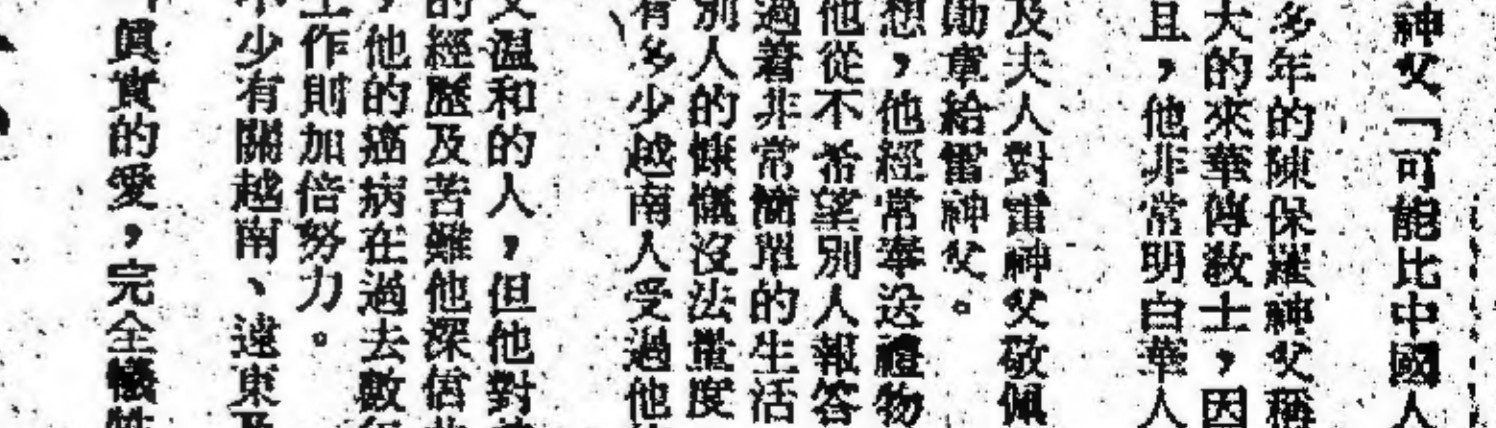 神父「可能比中國人
多年的陳保羅神父稱
大的來華傳教士，因
且，他非常明白華人
及夫人對雷神父敬佩
勛章給雷神父。
想，他經常奉送禮物
他從不希望別人報答
過着非常簡單的生活
別人的慷慨沒法量度
有多少越南人受過他
溫和的人，但他對
的經歷及苦難他深信
，他的癌病在過去數
工作則加倍努力。
不少有關越南、遠東及
真實的愛，完全犧牲